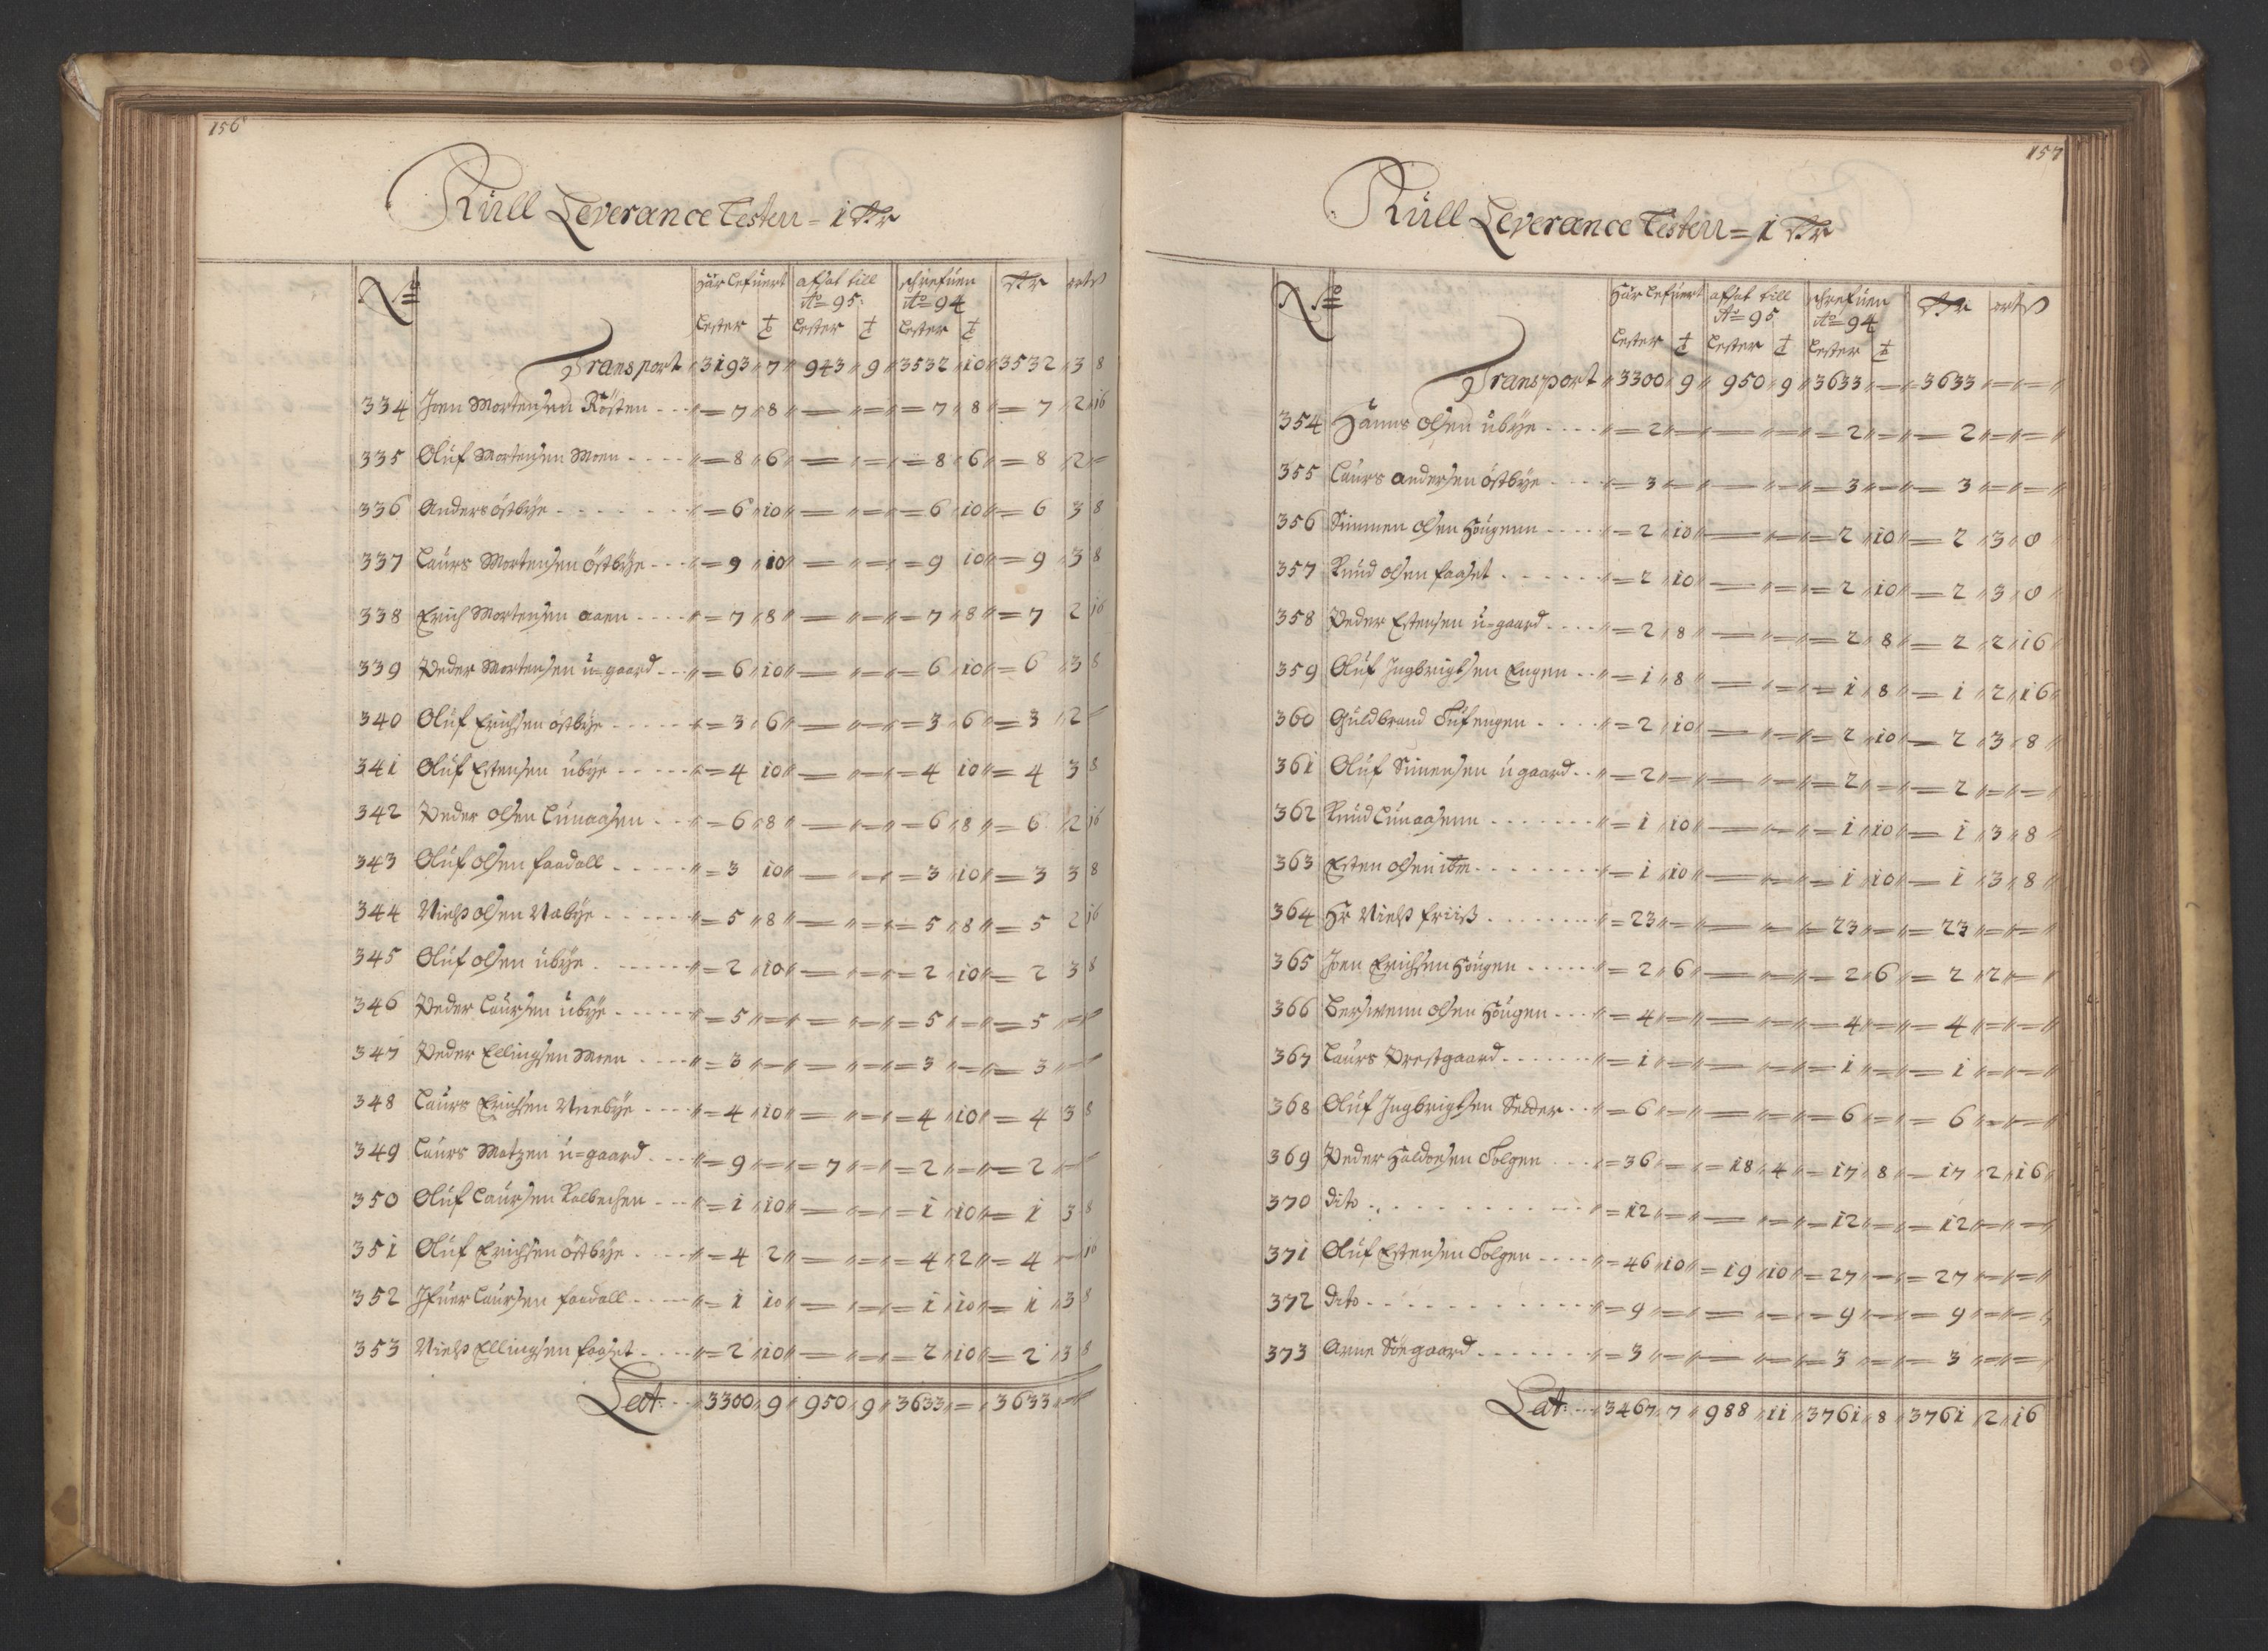 156
Kull Leverance Lesten = 1 Rdr
No Har lefuert afsat till schrefuen Rdr ort ß
Ao 95: Ao 94
Lester t Lester t Lester t
Transport 3193 7 943 9 3532 10 3532 3 8
334 Joen Mortensen Rösten = 7 8 — = = 7 8 = 7 2 16
335 Oluf Mortensen Moen = 8 6 — = = 8 6 = 8 2 =
336 Anders östbÿe = 6 10 — = = 6 10 = 6 3 8
337 Laurs Mortensen östbÿe = 9 10 — = = 9 10 = 9 3 8
338 Erich Mortensen aaen = 7 8 — = = 7 8 = 7 2 16
339 Peder Mortensen u=gaard = 6 10 — = = 6 10 = 6 3 8
340 Oluf Erichsen östbÿe = 3 6 — = = 3 6 = 3 2 =
341 Oluf Estensen ubÿe = 4 10 — = = 4 10 = 4 3 8
342 Peder olsen Lunaasen = 6 8 — = = 6 8 = 6 2 16
343 Oluf olsen faadall = 3 10 — = = 3 10 = 3 3 8
344 Nielß olsen Nabÿe = 5 8 — = = 5 8 = 5 2 16
345 Oluf olsen ubÿe = 2 10 — = = 2 10 = 2 3 8
346 Peder Laursen ubÿe = 5 = — = = 5 = = 5 = =
347 Peder Ellingsen Moen = 3 = — = = 3 = = 3 = =
348 Laurs Erichsen Nnebÿe = 4 10 — = = 4 10 = 4 3 8
349 Laurs Matzen u=gaard = 9 = = 7 = = 2 = = 2 = =
350 Oluf Laursen Kolbechen = 1 10 — = = 1 10 = 1 3 8
351 Oluf Erichsen östbÿe = 4 2 — = = 4 2 = 4 — 16
352 Jfuer Laursen faadall = 1 10 — = = 1 10 = 1 3 8
353 Nielß Ellingsen faaset = 2 10 — = = 2 10 = 2 3 8
Lat: 3300 9 950 9 3633 = 3633 =
157
Kull Leverance Lesten = 1 Rdr
No Har lefuert afsat till schrefuen Rdr ort ß
Ao 95 Ao 94
Lester t Lester t Lester t
Transport 3300 9 950 9 3633 — 3633 = =
354 Hanns olsen ubÿe = 2 = — = = 2 = = 2 = =
355 Laurs andersen östbÿe = 3 = — = = 3 = = 3 = =
356 Simmen olsen Hougenn = 2 10 — = = 2 10 = 2 3 8
357 Knud olsen faaset = 2 10 — = = 2 10 = 2 3 8
358 Peder Estensen u=gaard = 2 8 — = = 2 8 = 2 2 16
359 Oluf Jngbrigtsen Engen = 1 8 — = = 1 8 = 1 2 16
360 Guldbrand Tufengen = 2 10 — = = 2 10 = 2 3 8
361 Oluf Simensen ugaard = 2 = — = = 2 = = 2 = =
362 Knud Lunaasenn = 1 10 — = = 1 10 = 1 3 8
363 Esten olsen ibm = 1 10 — = = 1 10 = 1 3 8
364 Hr Nielß friiß = 23 = — = = 23 = = 23 = =
365 Joen Erichsen Hougen = 2 6 — = = 2 6 = 2 2 =
366 Berswenn olsen Hougen = 4 = — = = 4 = = 4 = =
367 Laurs Prestgaard = 1 = — = = 1 = = 1 = =
368 Oluf Jngbrigtsen Selder = 6 = — = = 6 = = 6 = =
369 Peder Haldorsen Tolgen = 36 = = 18 4 = 17 8 = 17 2 16
370 dito = 12 = — = = 12 = = 12 = =
371 Oluf Estensen Tolgen = 46 10 = 19 10 = 27 = = 27 = =
372 dito = 9 = — = = 9 = = 9 = =
373 Arne Söegaard = 3 = — = = 3 = = 3 = =
Lat: 3467 7 988 11 3761 8 3761 2 16